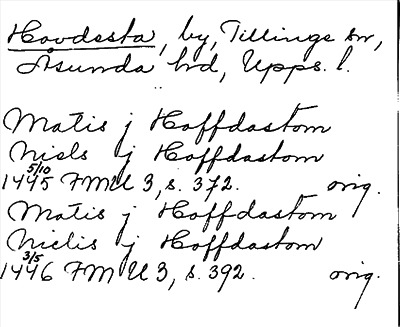 Hovdesta, by, Tillinge sn,
Åsunda hd, Upps. l.
Matis j Hoffdastom
Niels j Hoffdastom
5/10
1445 FMU 3, s. 372. orig.
Matis j Hoffdastom
Nielis j Hoffdastom
3/5
1446 FMU 3, s. 392. orig.